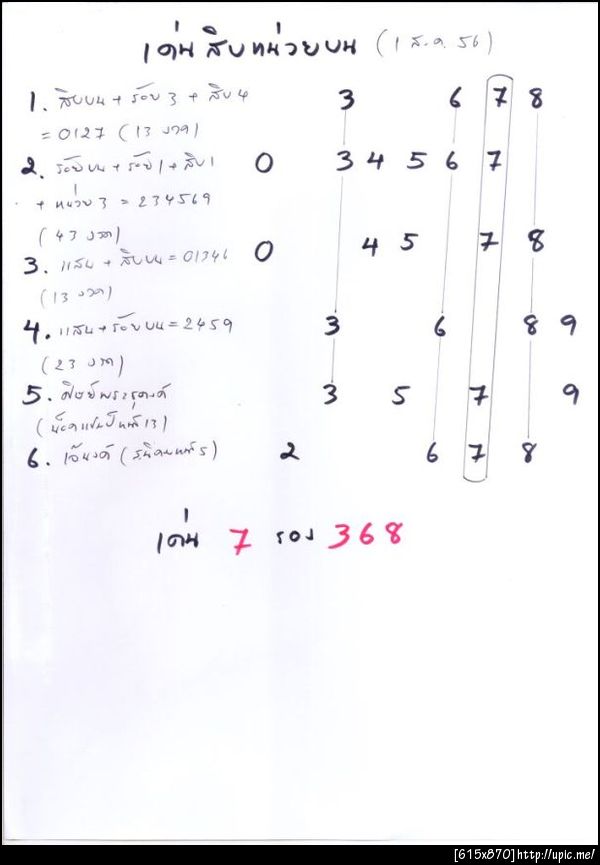 เด่นสิบหน่วยบน (1 ส.ค. 56)
1. สิบบน + ร้อย 3 + สิบ 4 3 6 7 8
= 0127 (13 งวด)
2. ร้อยบน + ร้อย 1 + สิบ 1 0 3 4 5 6 7
+ หน่วย 3 = 234569
(43 งวด) 0 4 5 7 8
3. แสน + สิบบน = 01346
(13 งวด)
4. แสน + ร้อยบน = 2459 3 6 8 9
(23 งวด)
5. ศิษย์พระธุดงค์ 3 5 7 9
6. 2 6 7 8
เด่น 7 รอง 368
[615x870]http://upic.me/